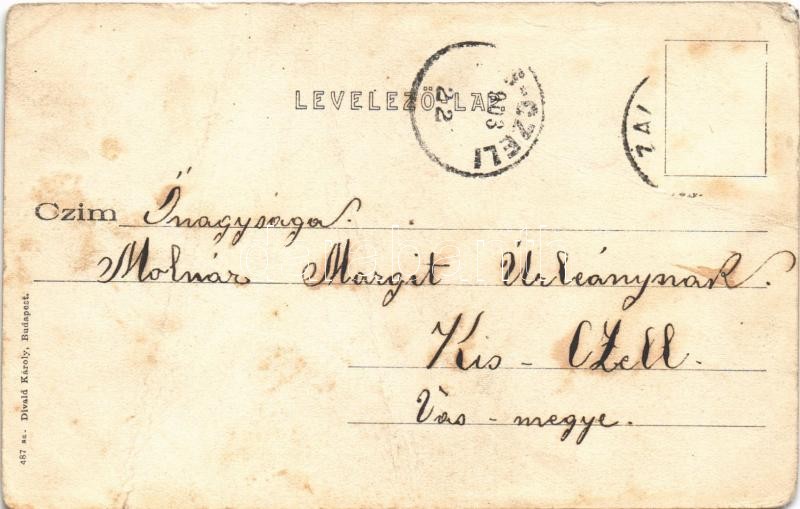 LEVELEZŐ-LAP
-CZELI
903
22
ZAL
Czim Őnagysága.
Molnár Margit Úrleánynak.
Kis - Czell.
Vas - megye.
487 sz. Divald Károly, Budapest.